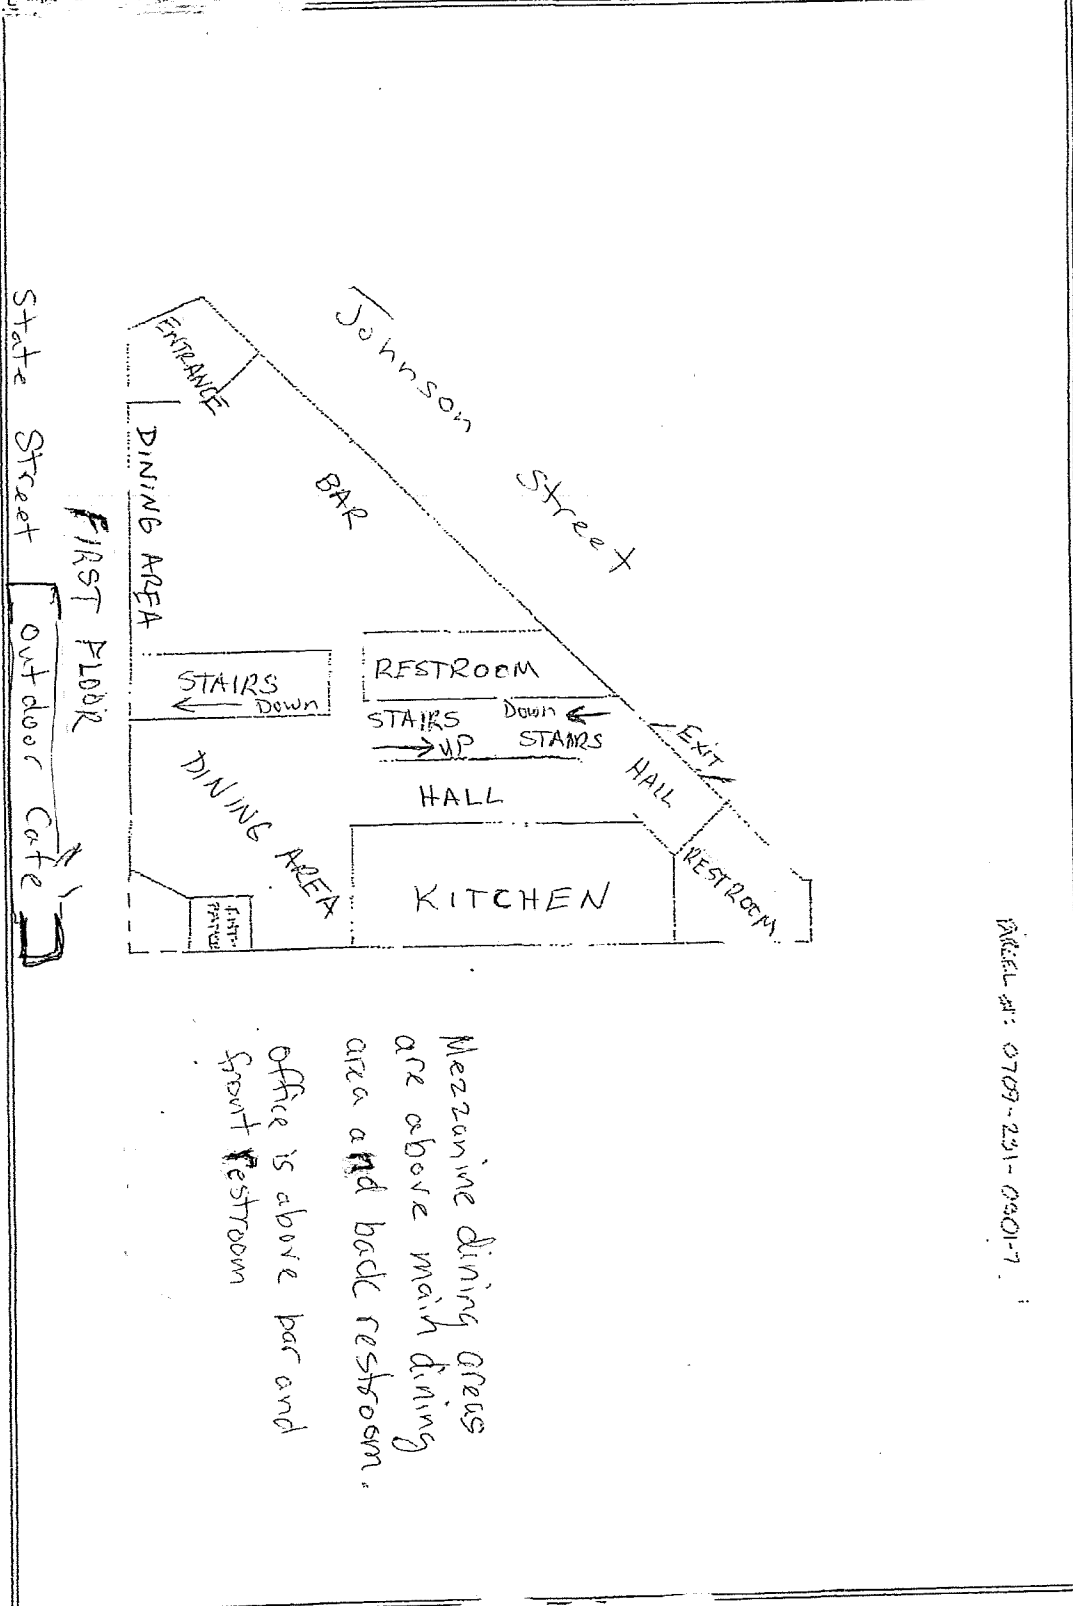 PARCEL #: 0709-231-0901-7
Johnson Street
ENTRANCE
BAR
DINING AREA
RESTROOM
STAIRS
Down
STAIRS
UP
Down
STAIRS
EXIT
HALL
HALL
RESTROOM
DINING AREA
KITCHEN
FIRST FLOOR
State Street
outdoor Cafe
Mezzanine dining areas
are above main dining
area and back restroom.
office is above bar and
front restroom